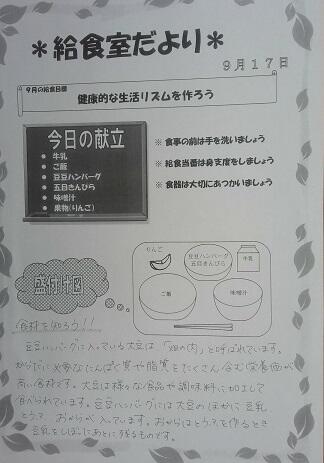 ＊給食室だより＊
９月１７日
９月の給食目標
健康的な生活リズムを作ろう
今日の献立
● 牛乳
● ご飯
● 豆豆ハンバーグ
● 五目きんぴら
● 味噌汁
● 果物(りんご)
※ 食事の前は手を洗いましょう
※ 給食当番は身支度をしましょう
※ 食器は大切にあつかいましょう
盛付け図
りんご
豆豆ハンバーグ
五目きんぴら
牛乳
ご飯
味噌汁
食材を知ろう！！
豆豆ハンバーグに入っている大豆は、「畑の肉」と呼ばれています。
からだに大事なたんぱく質や脂質をたくさん含む栄養価が
高い食材です。大豆は様々な食品や調味料に加工して
食べられています。豆豆ハンバーグには大豆のほかに豆乳
とうふ おからが入っています。おからはとうふを作るとき
豆乳をしぼったあとに残るものです。